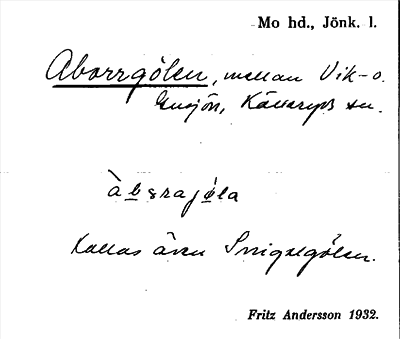 Mo hd., Jönk. l.
Aborrgölen, mellan Vik- o.
Ensjön, Källeryds sn.
àbɜrajö̀la
Kallas även Snigelgölen.
Fritz Andersson 1932.